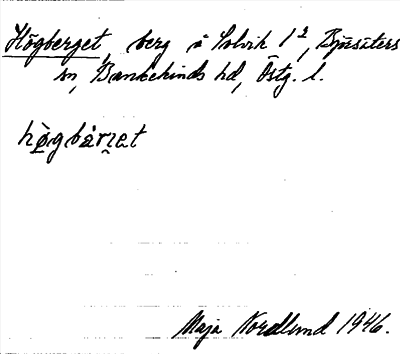 Högberget, berg å Solvik 1², Bjärsäters
sn, Bankekinds hd, Östg. l.
högbärɪet
Maja Nordlund 1946.